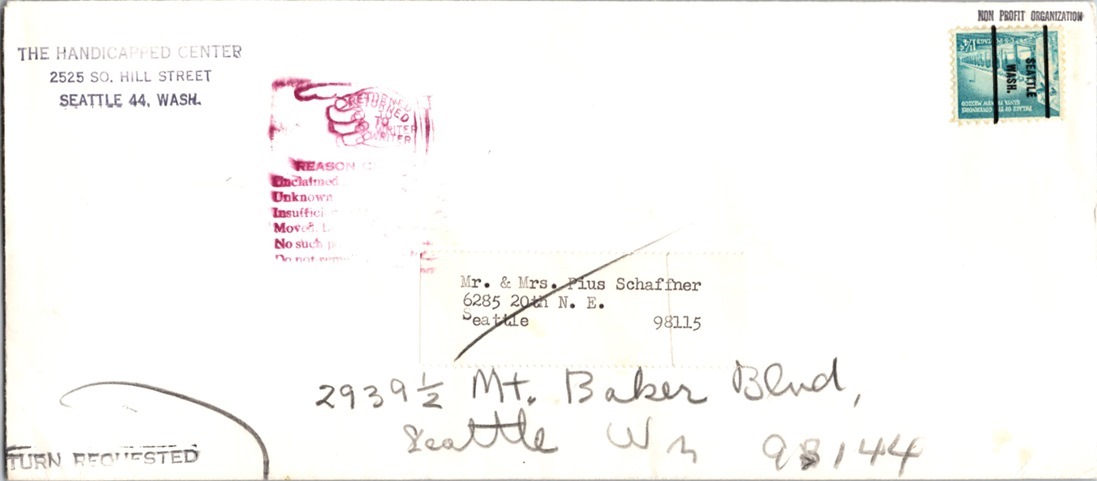 NON PROFIT ORGANIZATION
THE HANDICAPPED CENTER
2525 SO. HILL STREET
SEATTLE 44, WASH.
SEATTLE
WASH.
1¼¢
PALACE OF THE GOVERNORS
SANTA FE NEW MEXICO
RETURNED
TO
WRITER
REASON
Unclaimed
Unknown
Insuffici
Moved, L
No such p
Do not
Mr. & Mrs. Pius Schaffner
6285 20th N. E.
Seattle 98115
2939½ Mt. Baker Blvd,
Seattle Wn 98144
TURN REQUESTED